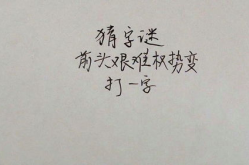 猜字谜
前头艰难权势变
打一字